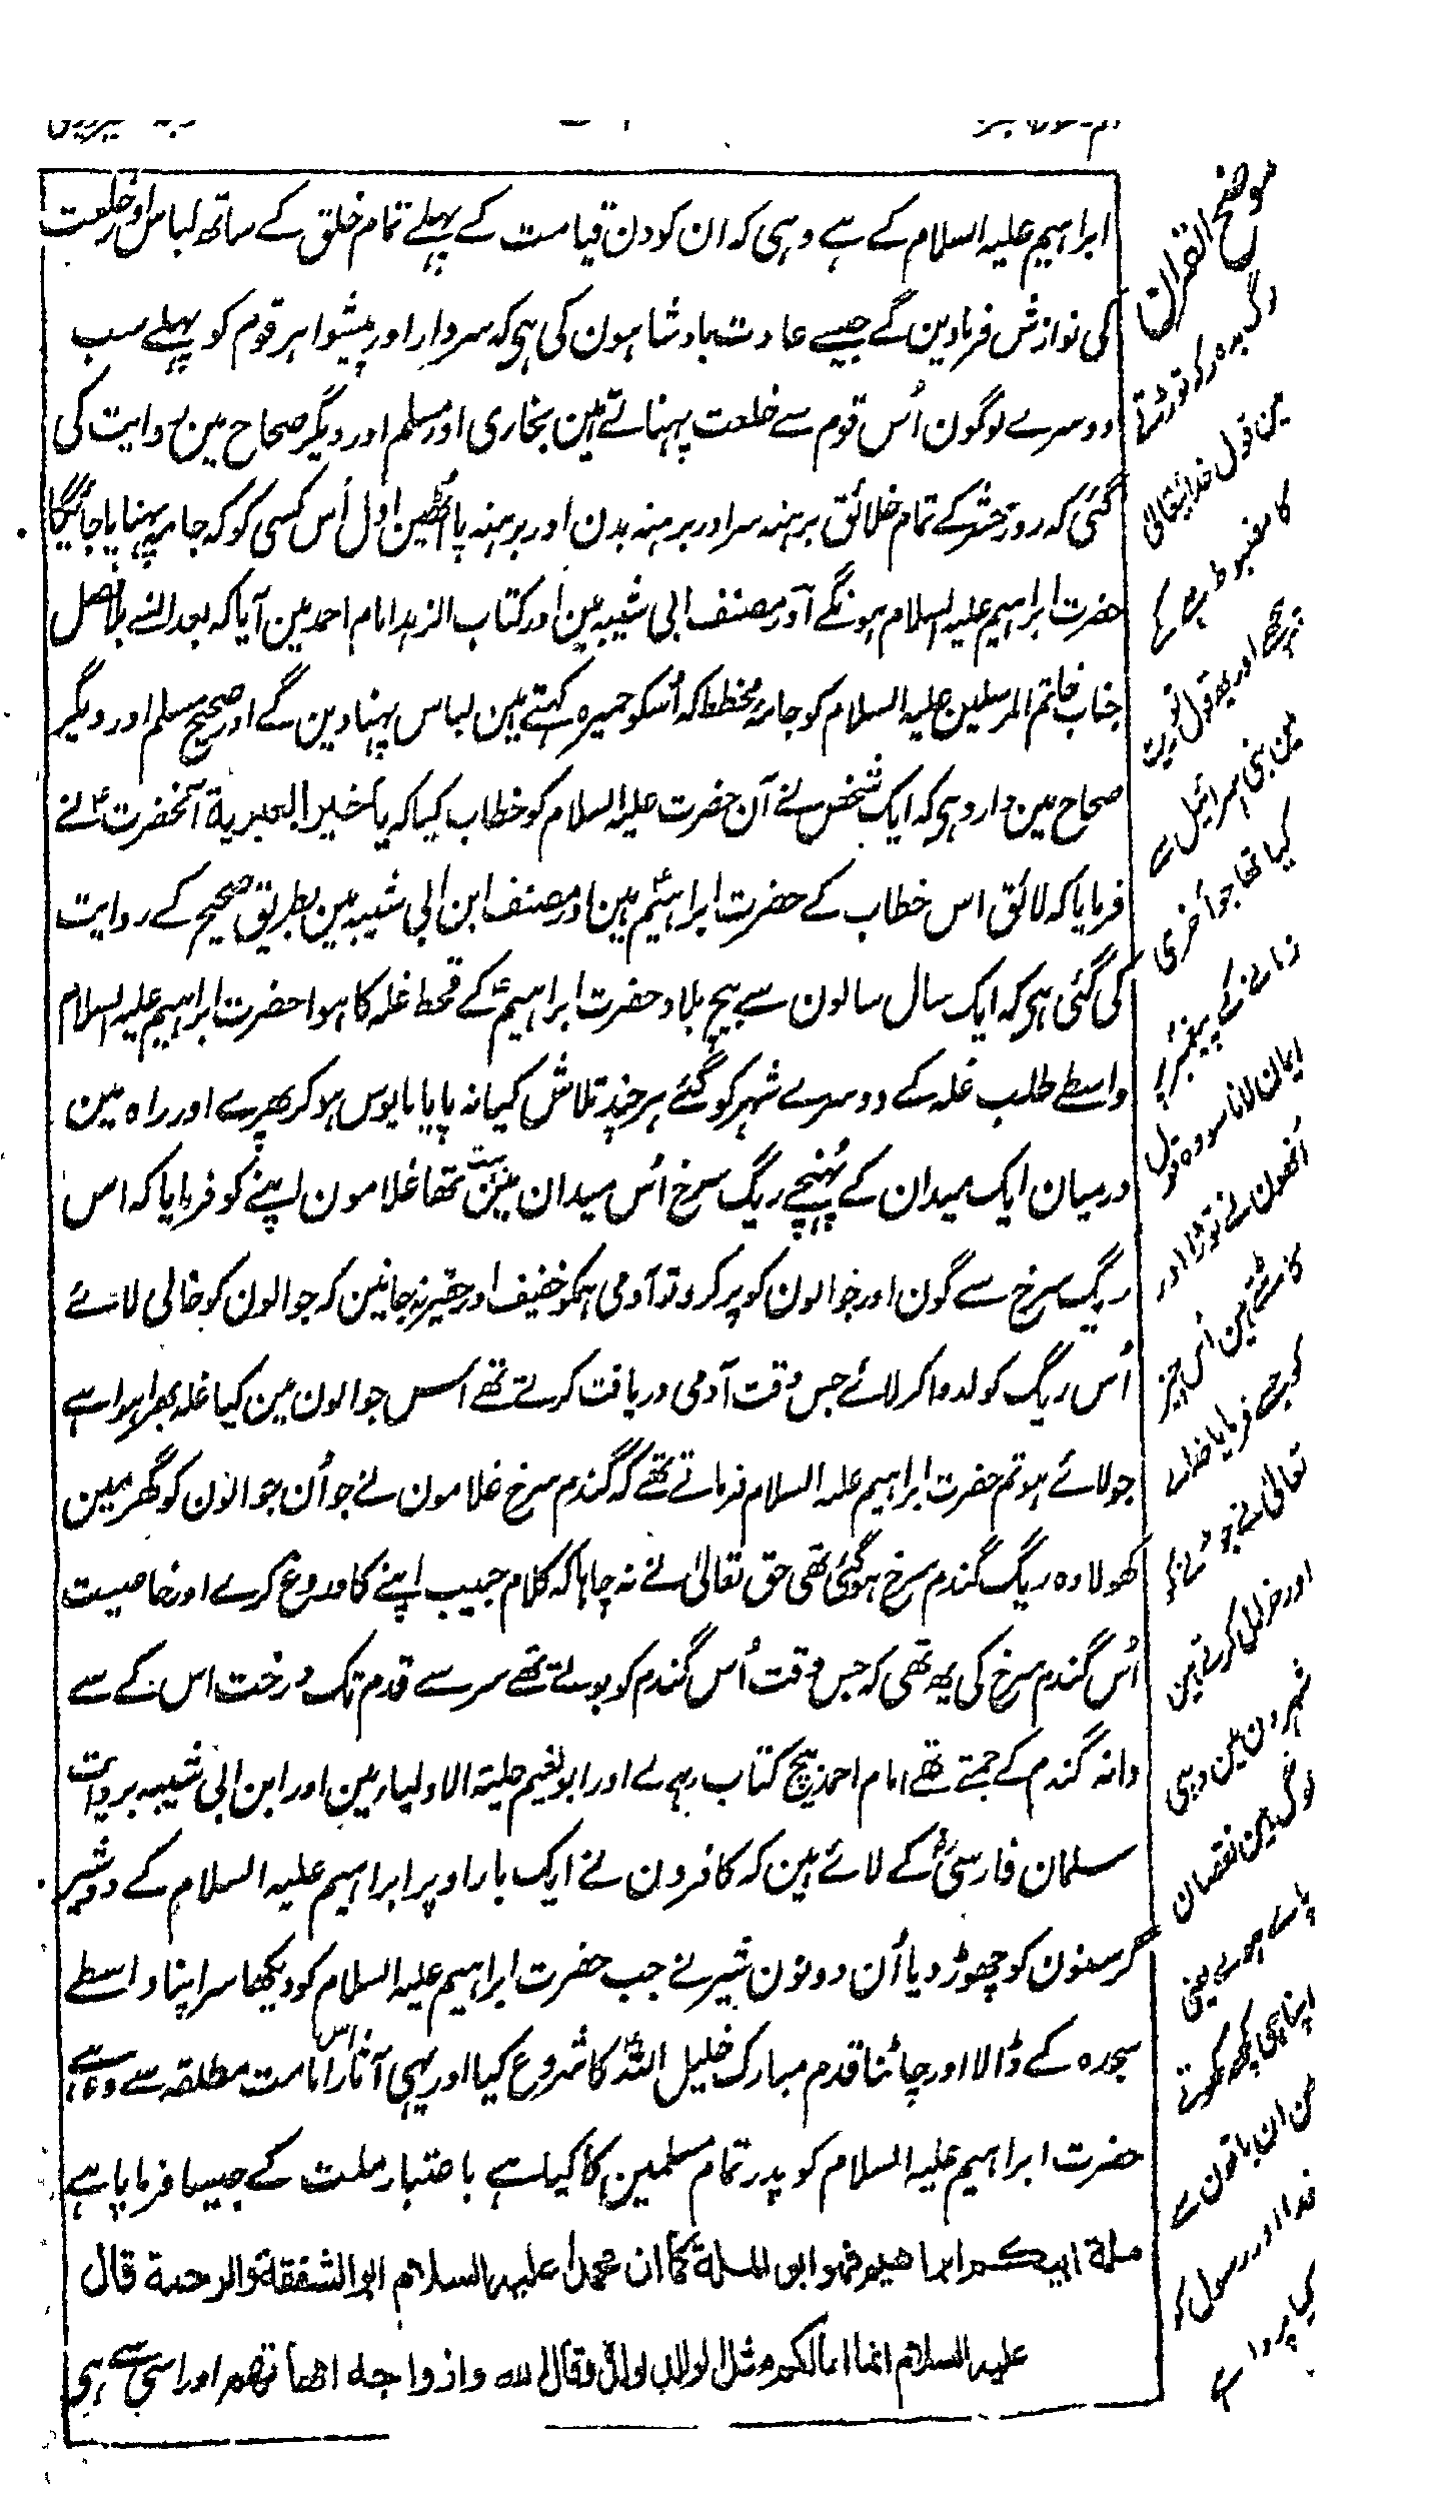 ابراہیم علیہ السلام کے ہے وہی کہ ان کو دن قیامت کے پہلے تمام خلق کے ساتھ لباس اور خلعت
کی نوازش فرماوین گے جیسے عادت بادشاہون کی ہی کہ سردار اور پیشوا ہر قوم کو پہلے سب
دوسرے لوگون اُس قوم سے خلعت پہناتے ہین بخاری اور مسلم اور دیگر صحاح مین روایت کی
گئی کہ روز حشر کے تمام خلائق برہنہ سر اور برہنہ بدن اور برہنہ پا اُٹھین اول اُس کسی کو کہ جامہ پہنایا جائیگا
حضرت ابراہیم علیہ السلام ہونگے اور مصنف ابی شیبہ مین اور کتاب الزہد امام احمد مین آیا کہ بعد انسے بلا فصل
جناب خاتم المرسلین علیہ السلام کو جامۂ مخطط کہ اُسکو حبیرہ کہتے ہین لباس پہناوین گے اور صحیح مسلم اور دیگر
صحاح مین وارد ہی کہ ایک شخص نے آن حضرت علیہ السلام کو خطاب کیا کہ یا خیر البریة آنحضرتؐ نے
فرمایا کہ لائق اس خطاب کے حضرت ابراہیمؑ ہین اور مصنف ابن ابی شیبہ مین بطریق صحیح کے روایت
کی گئی ہی کہ ایک سال سالون سے بیچ بلاد حضرت ابراہیمؑ کے قحط غلہ کا ہوا حضرت ابراہیم علیہ السلام
واسطے طلب غلہ کے دوسرے شہر کو گئے ہر چند تلاش کیا نہ پایا مایوس ہو کر پھرے اور راہ مین
درمیان ایک میدان کے پُہنچے ریگ سرخ اُس میدان مین بہت تھا غلامون اپنے کو فرمایا کہ اس
ریگ سرخ سے گون اور جوالون کو پر کرو تو آدمی ہمکو خفیف اور حقیر نہ جانین کہ جوالون کو خالی لائے
اُس ریگ کو لدوا کر لائے جس وقت آدمی دریافت کرتے تھے اس جوالون مین کیا غلہ بھرا ہوا ہے
جو لائے ہو تم حضرت ابراہیم علیہ السلام فرماتے تھے کہ گندم سرخ غلامون نے جو اُن جوالون کو گھر مین
کھولا وہ ریگ گندم سرخ ہو گئی تھی حق تعالیٰ نے نہ چاہا کہ کلام حبیب اپنے کا دروغ کرے اور خاصیت
اُس گندم سرخ کی یہ تھی کہ جس وقت اُس گندم کو بوتے تھے سر سے قدم تک درخت اس کے سے
دانہ گندم کے جمتے تھے امام احمد بیچ کتاب زہد کے اور ابو نعیم حلیة الاولیاء مین اور ابن ابی شیبہ بروایت
سلمان فارسیؓ کے لائے ہین کہ کافرون نے ایک بار اوپر ابراہیم علیہ السلام کے دو شیر
گرسنون کو چھوڑ دیا اُن دونون شیر نے جب حضرت ابراہیم علیہ السلام کو دیکھا سر اپنا واسطے
سجدہ کے ڈالا اور چاٹنا قدم مبارک خلیل اللہؑ کا شروع کیا اور یہی آثار امامت مطلقہ سے ہے
حضرت ابراہیم علیہ السلام کو پدر تمام مسلمین کا کیا ہے باعتبار ملت کے جیسا فرمایا ہے
ملة ابیکم ابراهیم فهو ابو الملة کما ان محمدا علیہ السلام ابو الشفقة والرحمة قال
علیہ السلام انما انا لکم مثل الوالد لولده وقال الله وازواجه امهاتهم اور اسی سے ہی
موضح القرآن
گرہ دیکر توڑتے
ہین قول خدایتعالیٰ
کا مضبوط پیچھے
اور یہ قول توریت
مین بنی اسرائیل سے
کیا تھا جو آخری
زمانہ کے پیغمبر پر
ایمان لانا سو وہ قول
اُنھون نے توڑا اور
کاٹتے ہین اُس چیز
کو جسے فرمایا خدا
تعالیٰ نے جوڑنا
اور خلل کرتے ہین
شہرون مین وہی
لوگ ہین نقصان
پائے ہوئے یعنی
اپنا ہی کچھ کھوتے
ہین ان باتون سے
خدا اور رسول کو
کیا پروا ہے